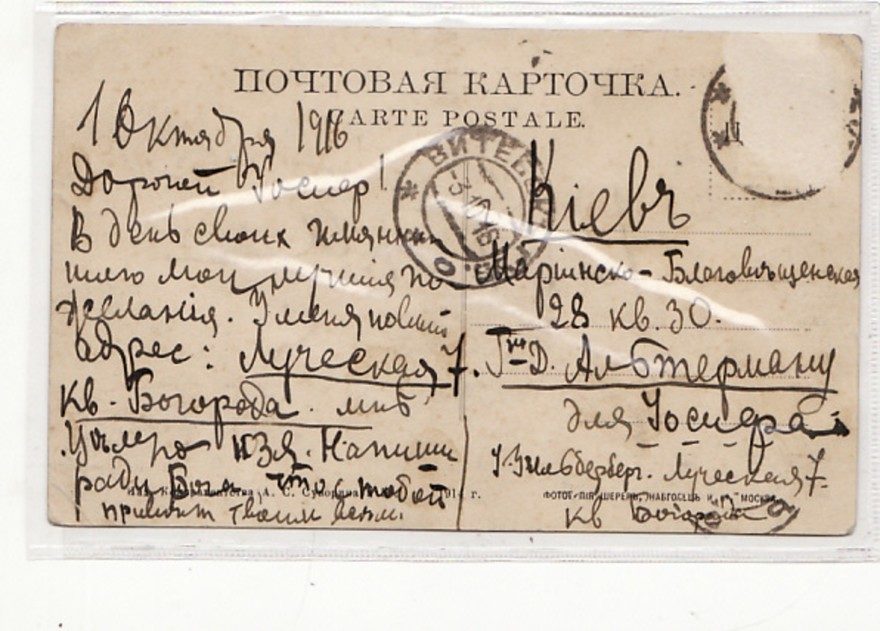 ПОЧТОВАЯ КАРТОЧКА.
CARTE POSTALE.
1 Октября 1916
Дорогой Иосиф!
В день своих имянин
шлю мои лучшия по
желанія. У меня новый
адрес: Лучёская 7.
Кв. Богорода. мнѣ
Напиши
ради Бога, что с тобой
привѣт твоим всѣм.
ВИТЕБСК
3 10 16
Кіевъ
Маріинско-Благовѣщенская
28 кв. 30.
Г-ну Д. Альтерману
для Іосифа
Зильберберг. Лучёская 7.
кв Богорода
А. С. Суворина
г.
ФОТОТИПІЯ ШЕРЕРЪ, НАБГОЛЬЦЪ И К° МОСКВА